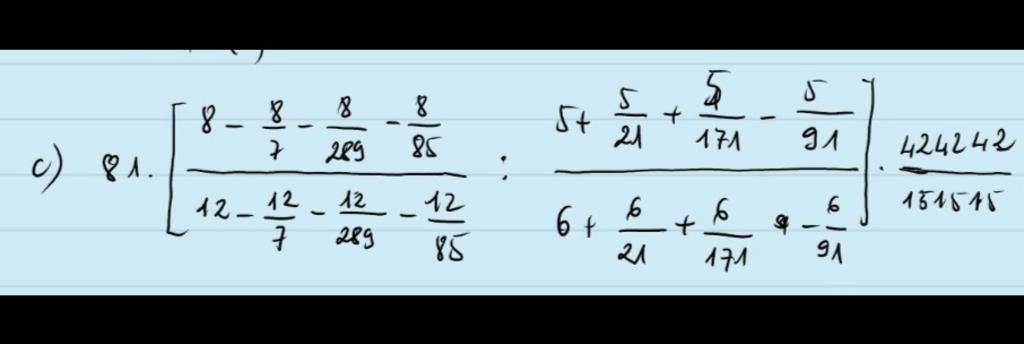 c) 81 . [ (8 - 8/7 - 8/289 - 8/85) / (12 - 12/7 - 12/289 - 12/85) : (5 + 5/21 + 5/171 - 5/91) / (6 + 6/21 + 6/171 - 6/91) ] . 424242/151515